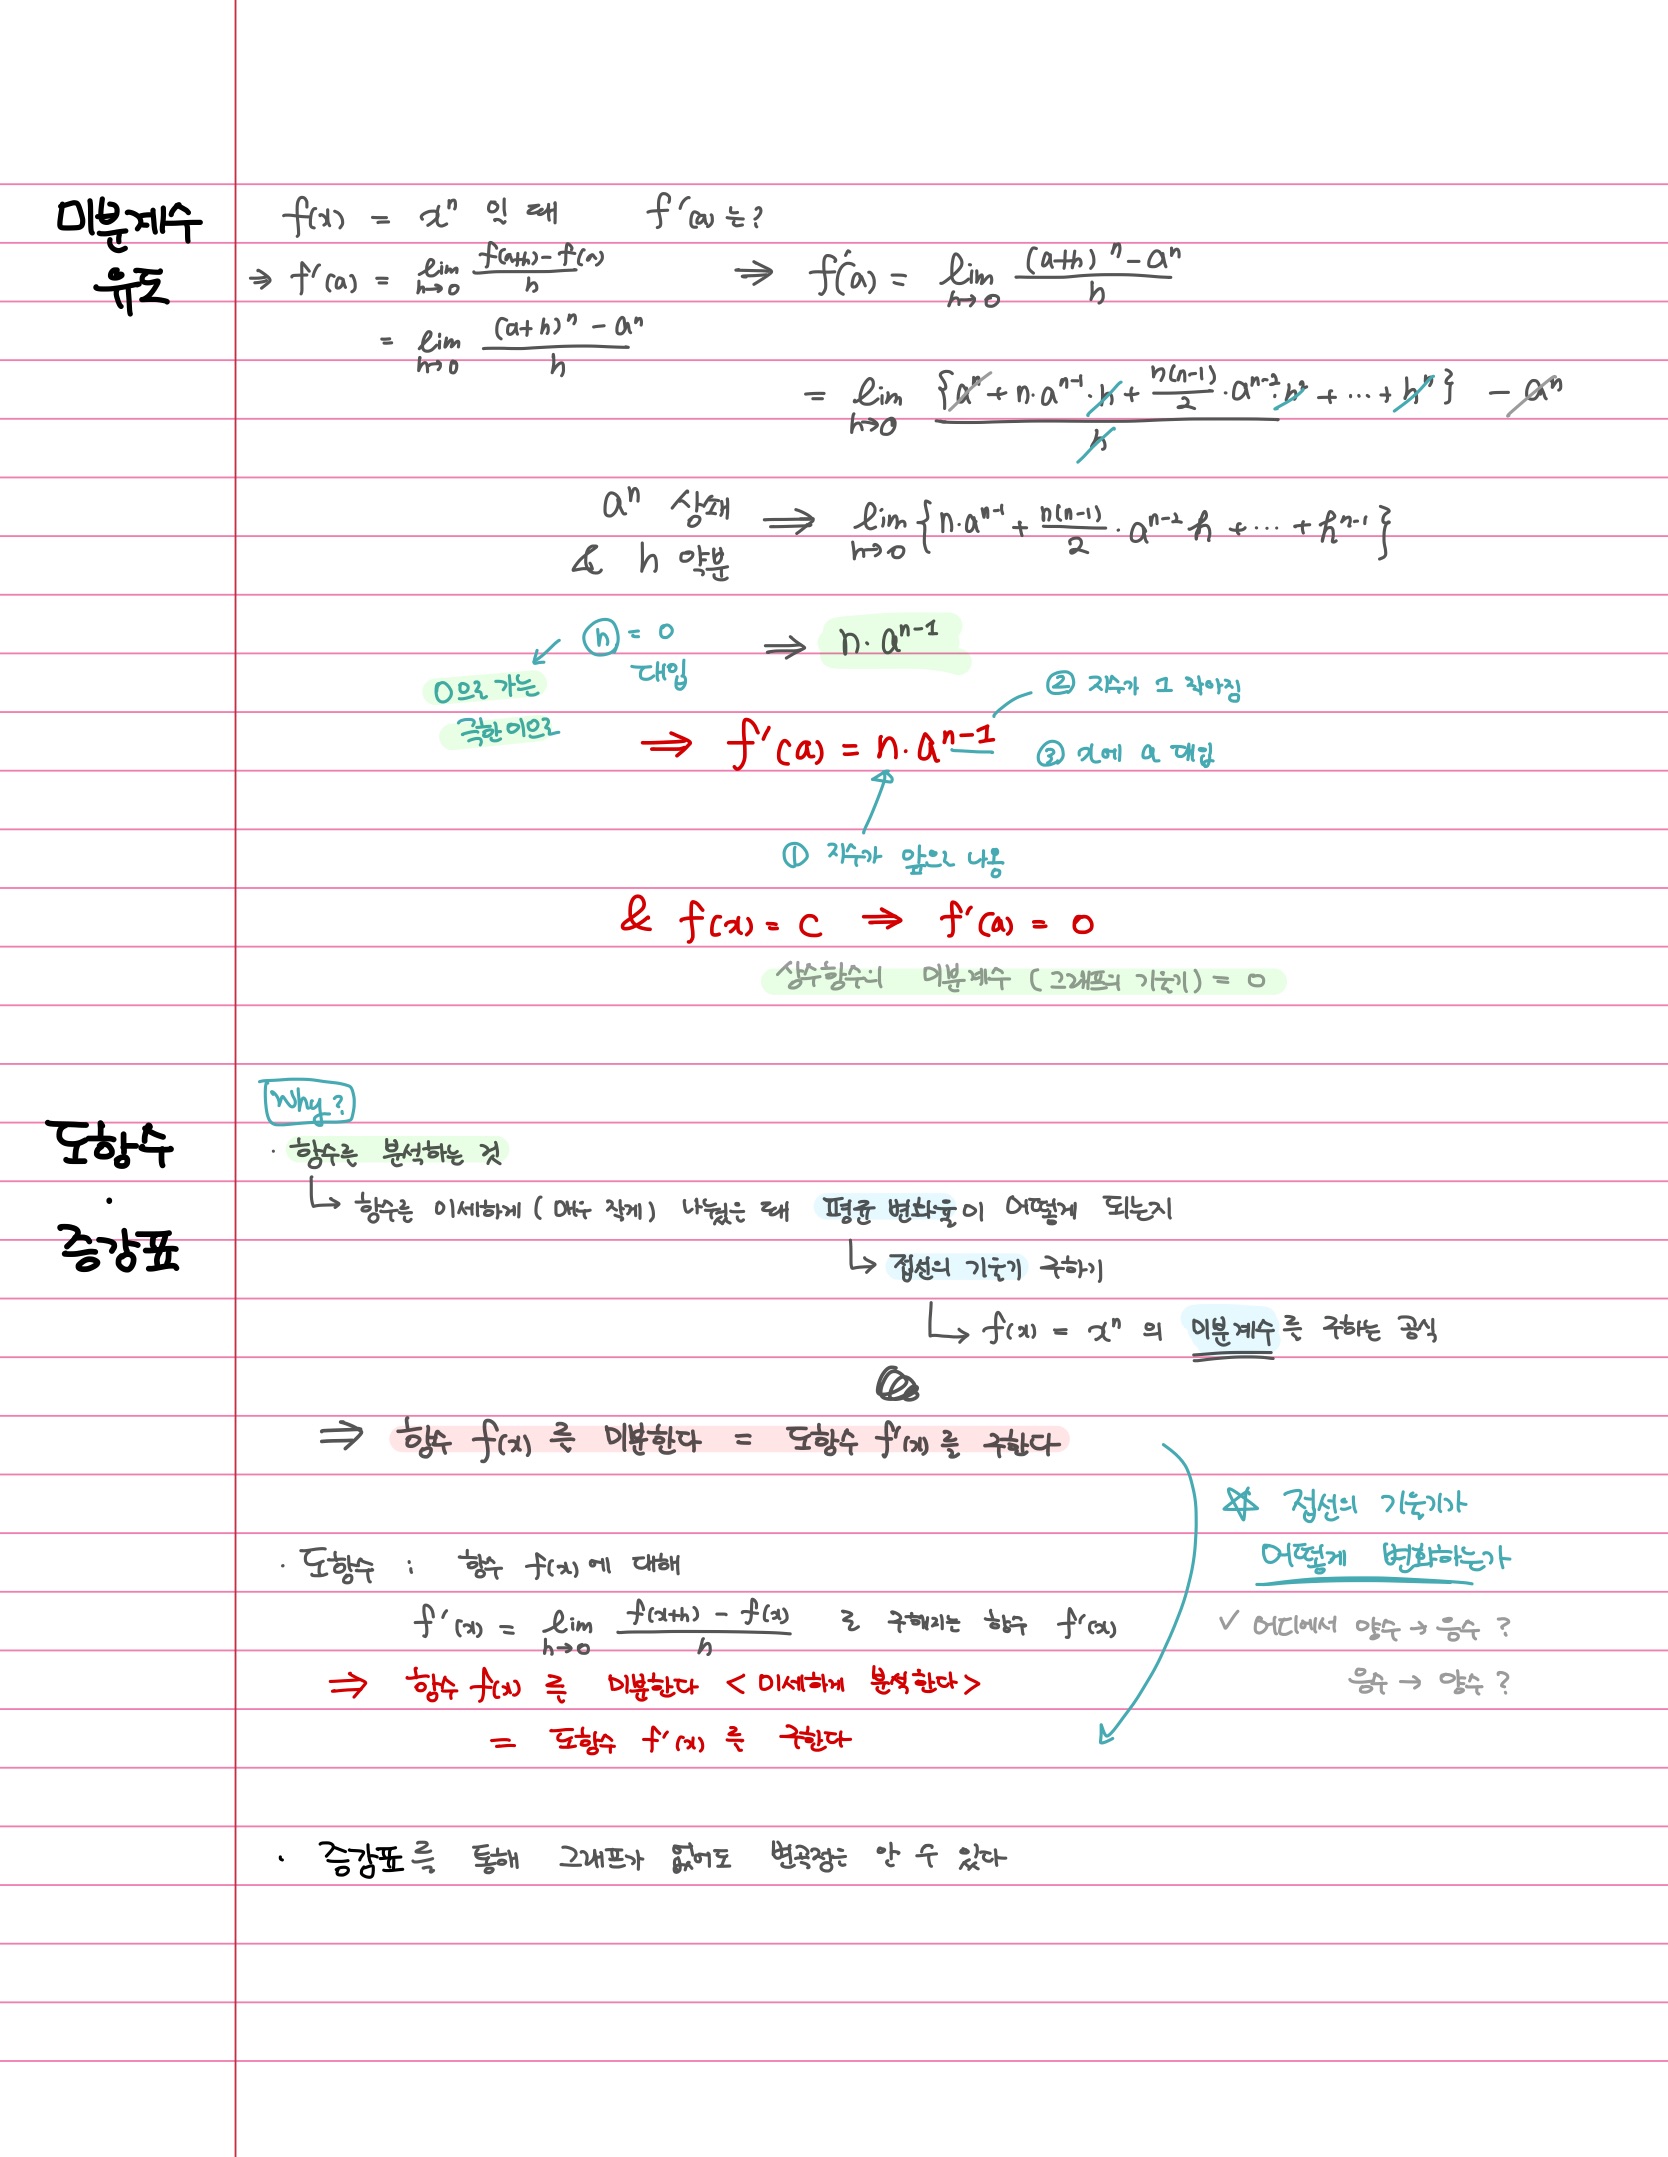 미분계수
유도
f(x) = xⁿ 일 때 f'(a)는?
⇒ f'(a) = lim h→0 (f(a+h) - f(a))/h
= lim h→0 ((a+h)ⁿ - aⁿ)/h
⇒ f'(a) = lim h→0 ((a+h)ⁿ - aⁿ)/h
= lim h→0 ({aⁿ + n·aⁿ⁻¹·h + n(n-1)/2 ·aⁿ⁻²·h² + ··· + hⁿ} - aⁿ)/h
aⁿ 상쇄
& h 약분
⇒ lim h→0 {n·aⁿ⁻¹ + n(n-1)/2 · aⁿ⁻² h + ··· + hⁿ⁻¹}
h = 0
대입
0으로 가는
극한이므로
⇒ n·aⁿ⁻¹
⇒ f'(a) = n·aⁿ⁻¹
② 지수가 1 작아짐
③ x에 a 대입
① 지수가 앞으로 나옴
& f(x) = c ⇒ f'(a) = 0
상수함수의 미분계수 (그래프의 기울기) = 0
도함수
·
증감표
Why?
· 함수를 분석하는 것
↳ 함수를 미세하게 (매우 작게) 나눴을 때 평균 변화율이 어떻게 되는지
↳ 접선의 기울기 구하기
↳ f(x) = xⁿ 의 미분계수를 구하는 공식
⇒ 함수 f(x) 를 미분한다 = 도함수 f'(x) 를 구한다
☆ 접선의 기울기가
어떻게 변화하는가
✓ 어디에서 양수 → 음수 ?
음수 → 양수 ?
· 도함수 : 함수 f(x)에 대해
f'(x) = lim h→0 (f(x+h) - f(x))/h 로 구해지는 함수 f'(x)
⇒ 함수 f(x) 를 미분한다 < 미세하게 분석한다 >
= 도함수 f'(x) 를 구한다
· 증감표를 통해 그래프가 없어도 변곡점을 알 수 있다